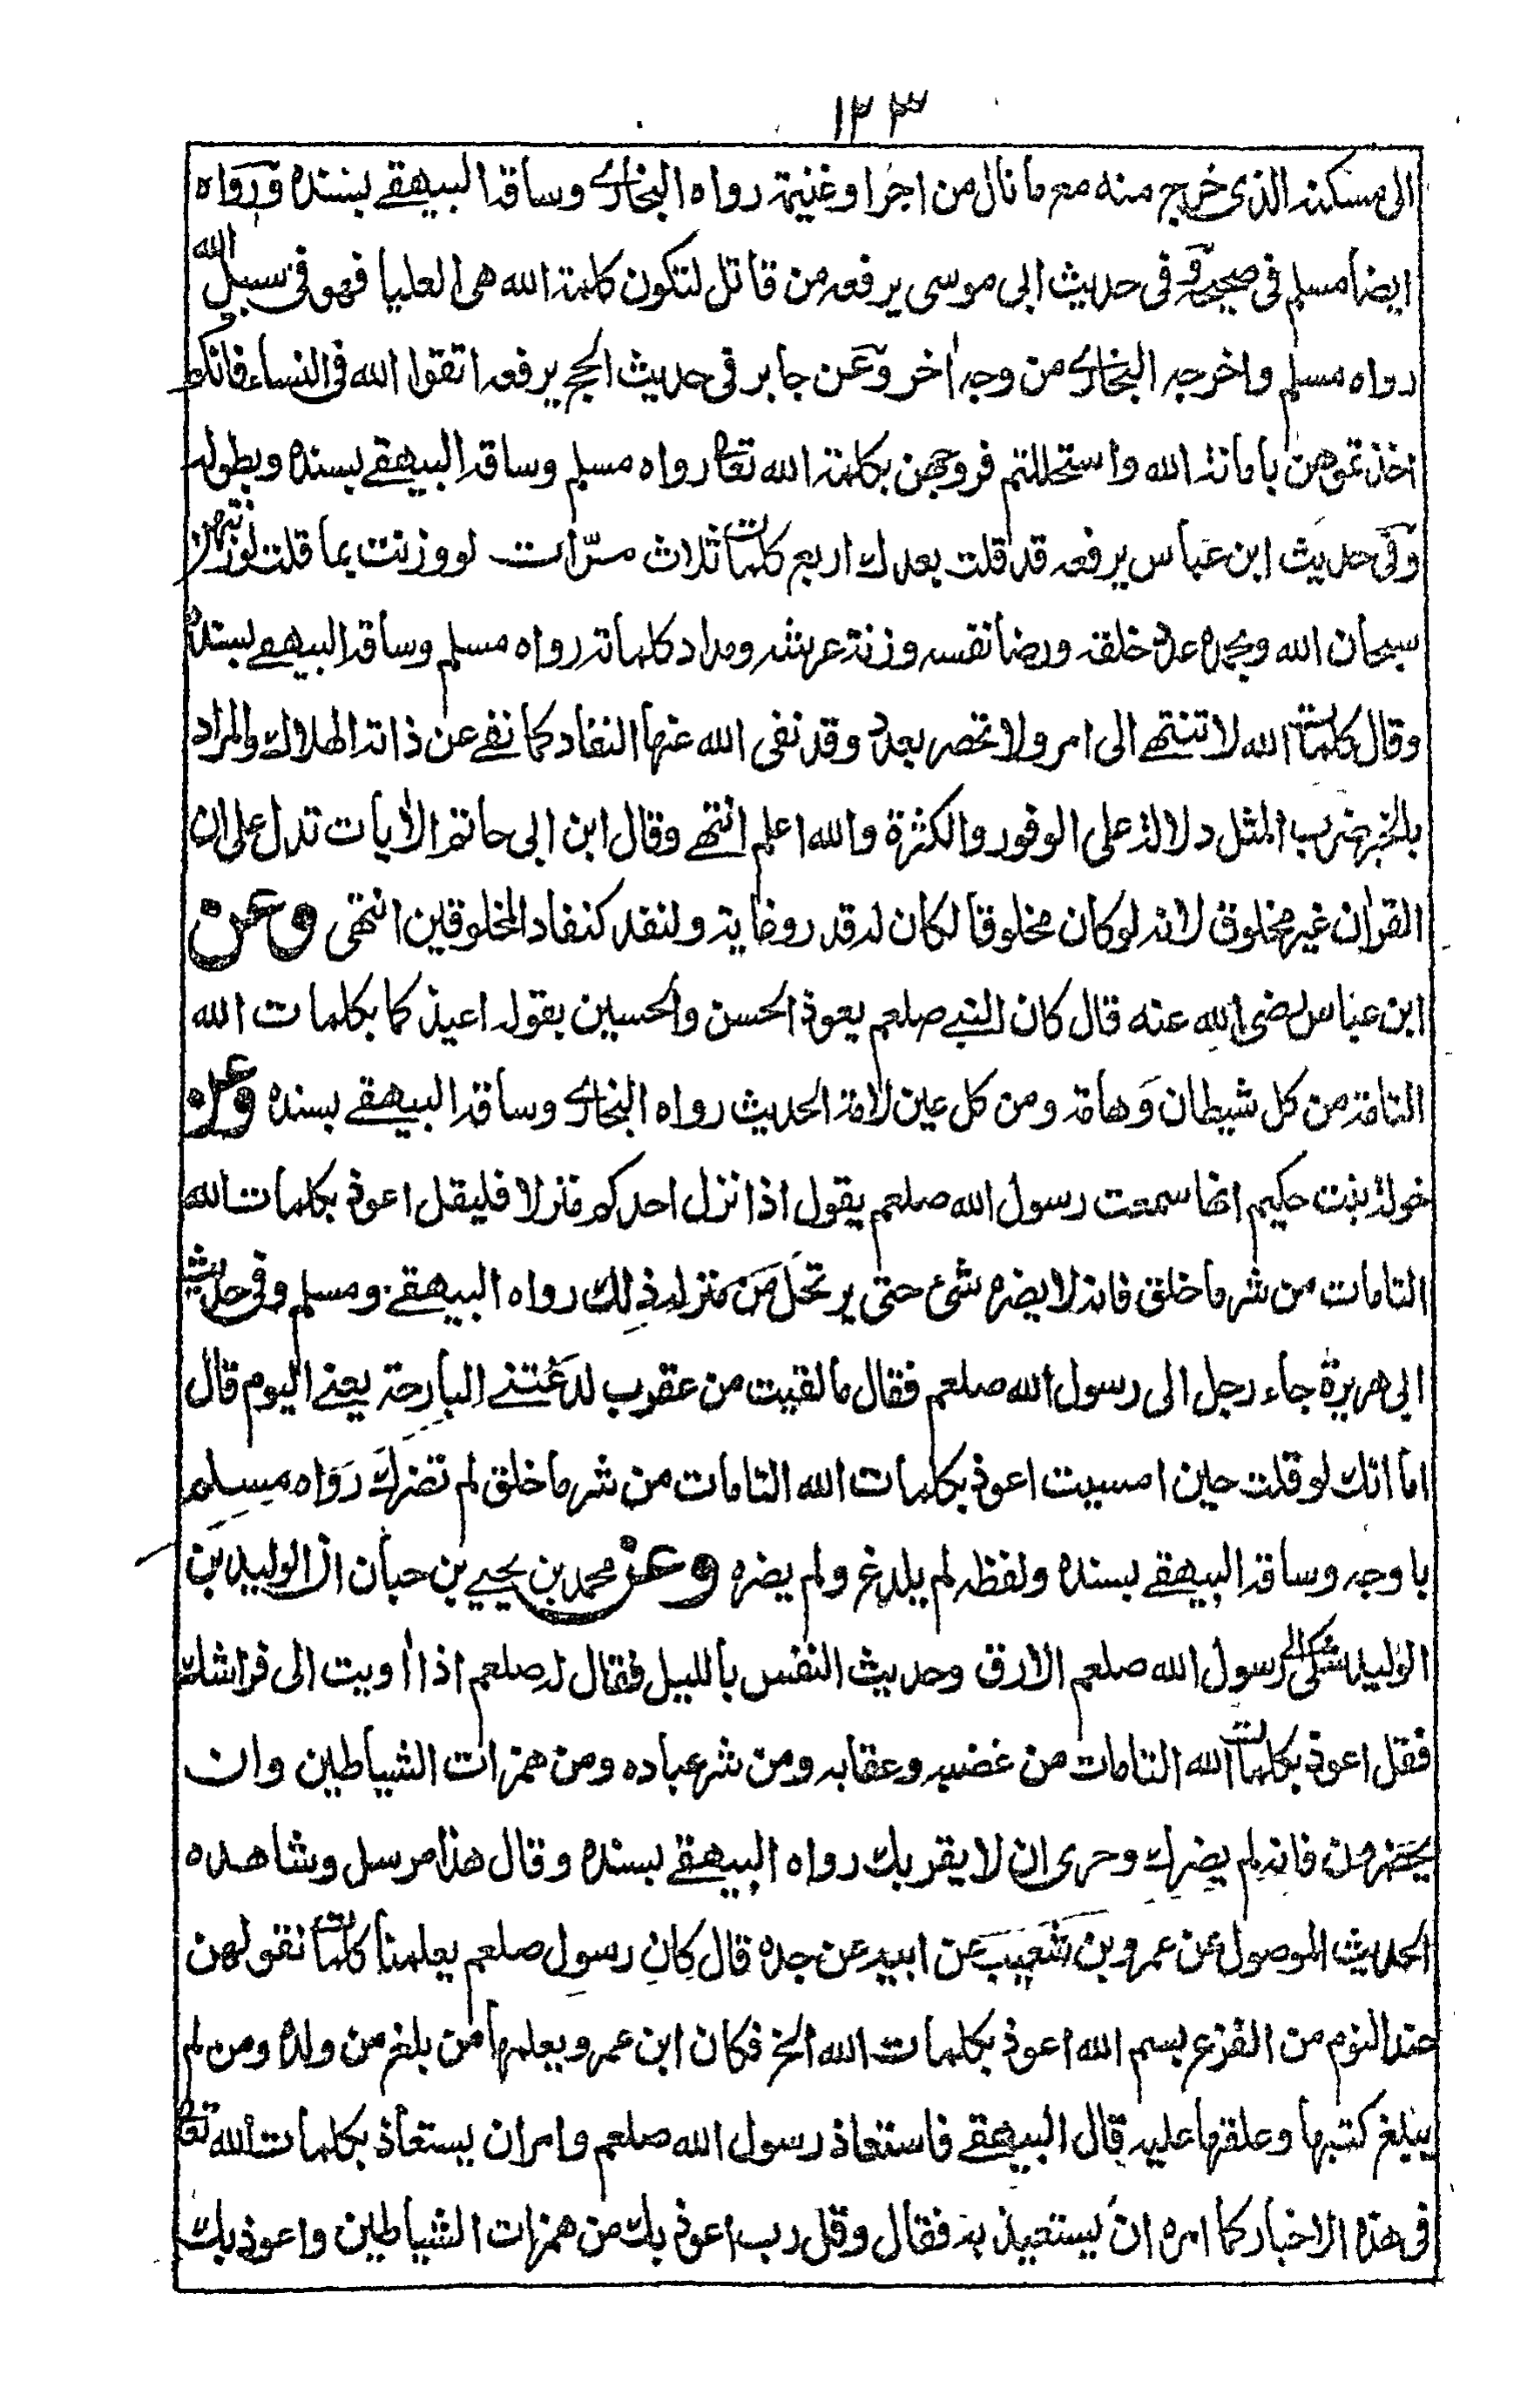 ١٢٣
الى مسكنه الذى خرج منه مع ما نال من اجرا وغنيمة رواه البخارى وساقه البيهقے بسنده ورواه
ايضا مسلم فى صحيحه وفى حديث ابى موسى يرفعه من قاتل لتكون كلمة الله هى العليا فهو فى سبيل الله
رواه مسلم واخرجه البخارى من وجه اخر وعن جابر فى حديث الحج يرفعه اتقوا الله فى النساء فانكم
اخذتموهن بامانة الله واستحللتم فروجهن بكلمة الله تعا رواه مسلم وساقه البيهقے بسنده وبطوله
وفى حديث ابن عباس يرفعه قد قلت بعدك اربع كلمات ثلاث مرّات لو وزنت بما قلت لوزنتهن
سبحان الله وبحمده عدد خلقه ورضا نفسه وزنة عرشه ومداد كلماته رواه مسلم وساقه البيهقے بسنده
وقال كلمات الله لا تنتهے الى امر ولا تحصر بعدد وقد نفى الله عنها النفاد كما نفے عن ذاته الهلاك والمراد
بالخبر ضرب المثل دلالة على الوفور والكثرة والله اعلم انتهے وقال ابن ابى حاتم الأيات تدل على ان
القرأن غير مخلوق لانه لو كان مخلوقا لكان له قدر وغاية ولنفد كنفاد المخلوقين انتهى وعن
ابن عباس رضى الله عنه قال كان النبے صلعم يعوذ الحسن والحسين بقوله اعيذ كما بكلمات الله
التامة من كل شيطان وهامة ومن كل عين لامة الحديث رواه البخارى وساقه البيهقے بسنده وعن
خولة بنت حكيم انها سمعت رسول الله صلعم يقول اذا نزل احدكم منزلا فليقل اعوذ بكلمات الله
التامات من شر ما خلق فانه لا يضره شئ حتى يرتحل من منزله ذلك رواه البيهقے ومسلم وفى حديث
ابى هريرة جاء رجل الى رسول الله صلعم فقال ما لقيت من عقرب لدغتنے البارحة يعنے اليوم قال
اما انك لو قلت حين امسيت اعوذ بكلمات الله التامات من شر ما خلق لم تضرك رواه مسلم
باوجه وساقه البيهقے بسنده ولفظه لم يلدغ ولم يضره وعن محمد بن يحيے بن حبان ان الوليد بن
الوليد شكى الى رسول الله صلعم الارق وحديث النفس بالليل فقال له صلعم اذا اويت الى فراشك
فقل اعوذ بكلمات الله التامات من غضبه وعقابه ومن شر عباده ومن همزات الشياطين وان
يحضرون فانه لم يضرك وحرى ان لا يقربك رواه البيهقے بسنده وقال هذا مرسل وشاهده
الحديث الموصول عن عمرو بن شعيب عن ابيه عن جده قال كان رسول صلعم يعلمنا كلمات نقولهن
عند النوم من الفزع بسم الله اعوذ بكلمات الله الخ فكان ابن عمرو يعلمها من بلغ من ولده ومن لم
يبلغ كتبها وعلقها عليه قال البيهقے فاستعاذ رسول الله صلعم وامر ان يستعاذ بكلمات الله تعا
فى هذه الاخبار كما امره ان يستعيذ به فقال وقل رب اعوذ بك من همزات الشياطين واعوذ بك